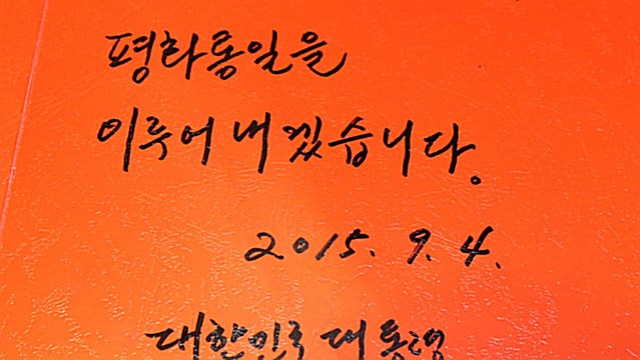 평화통일을
이루어 내겠습니다.
2015. 9. 4.
대한민국 대통령